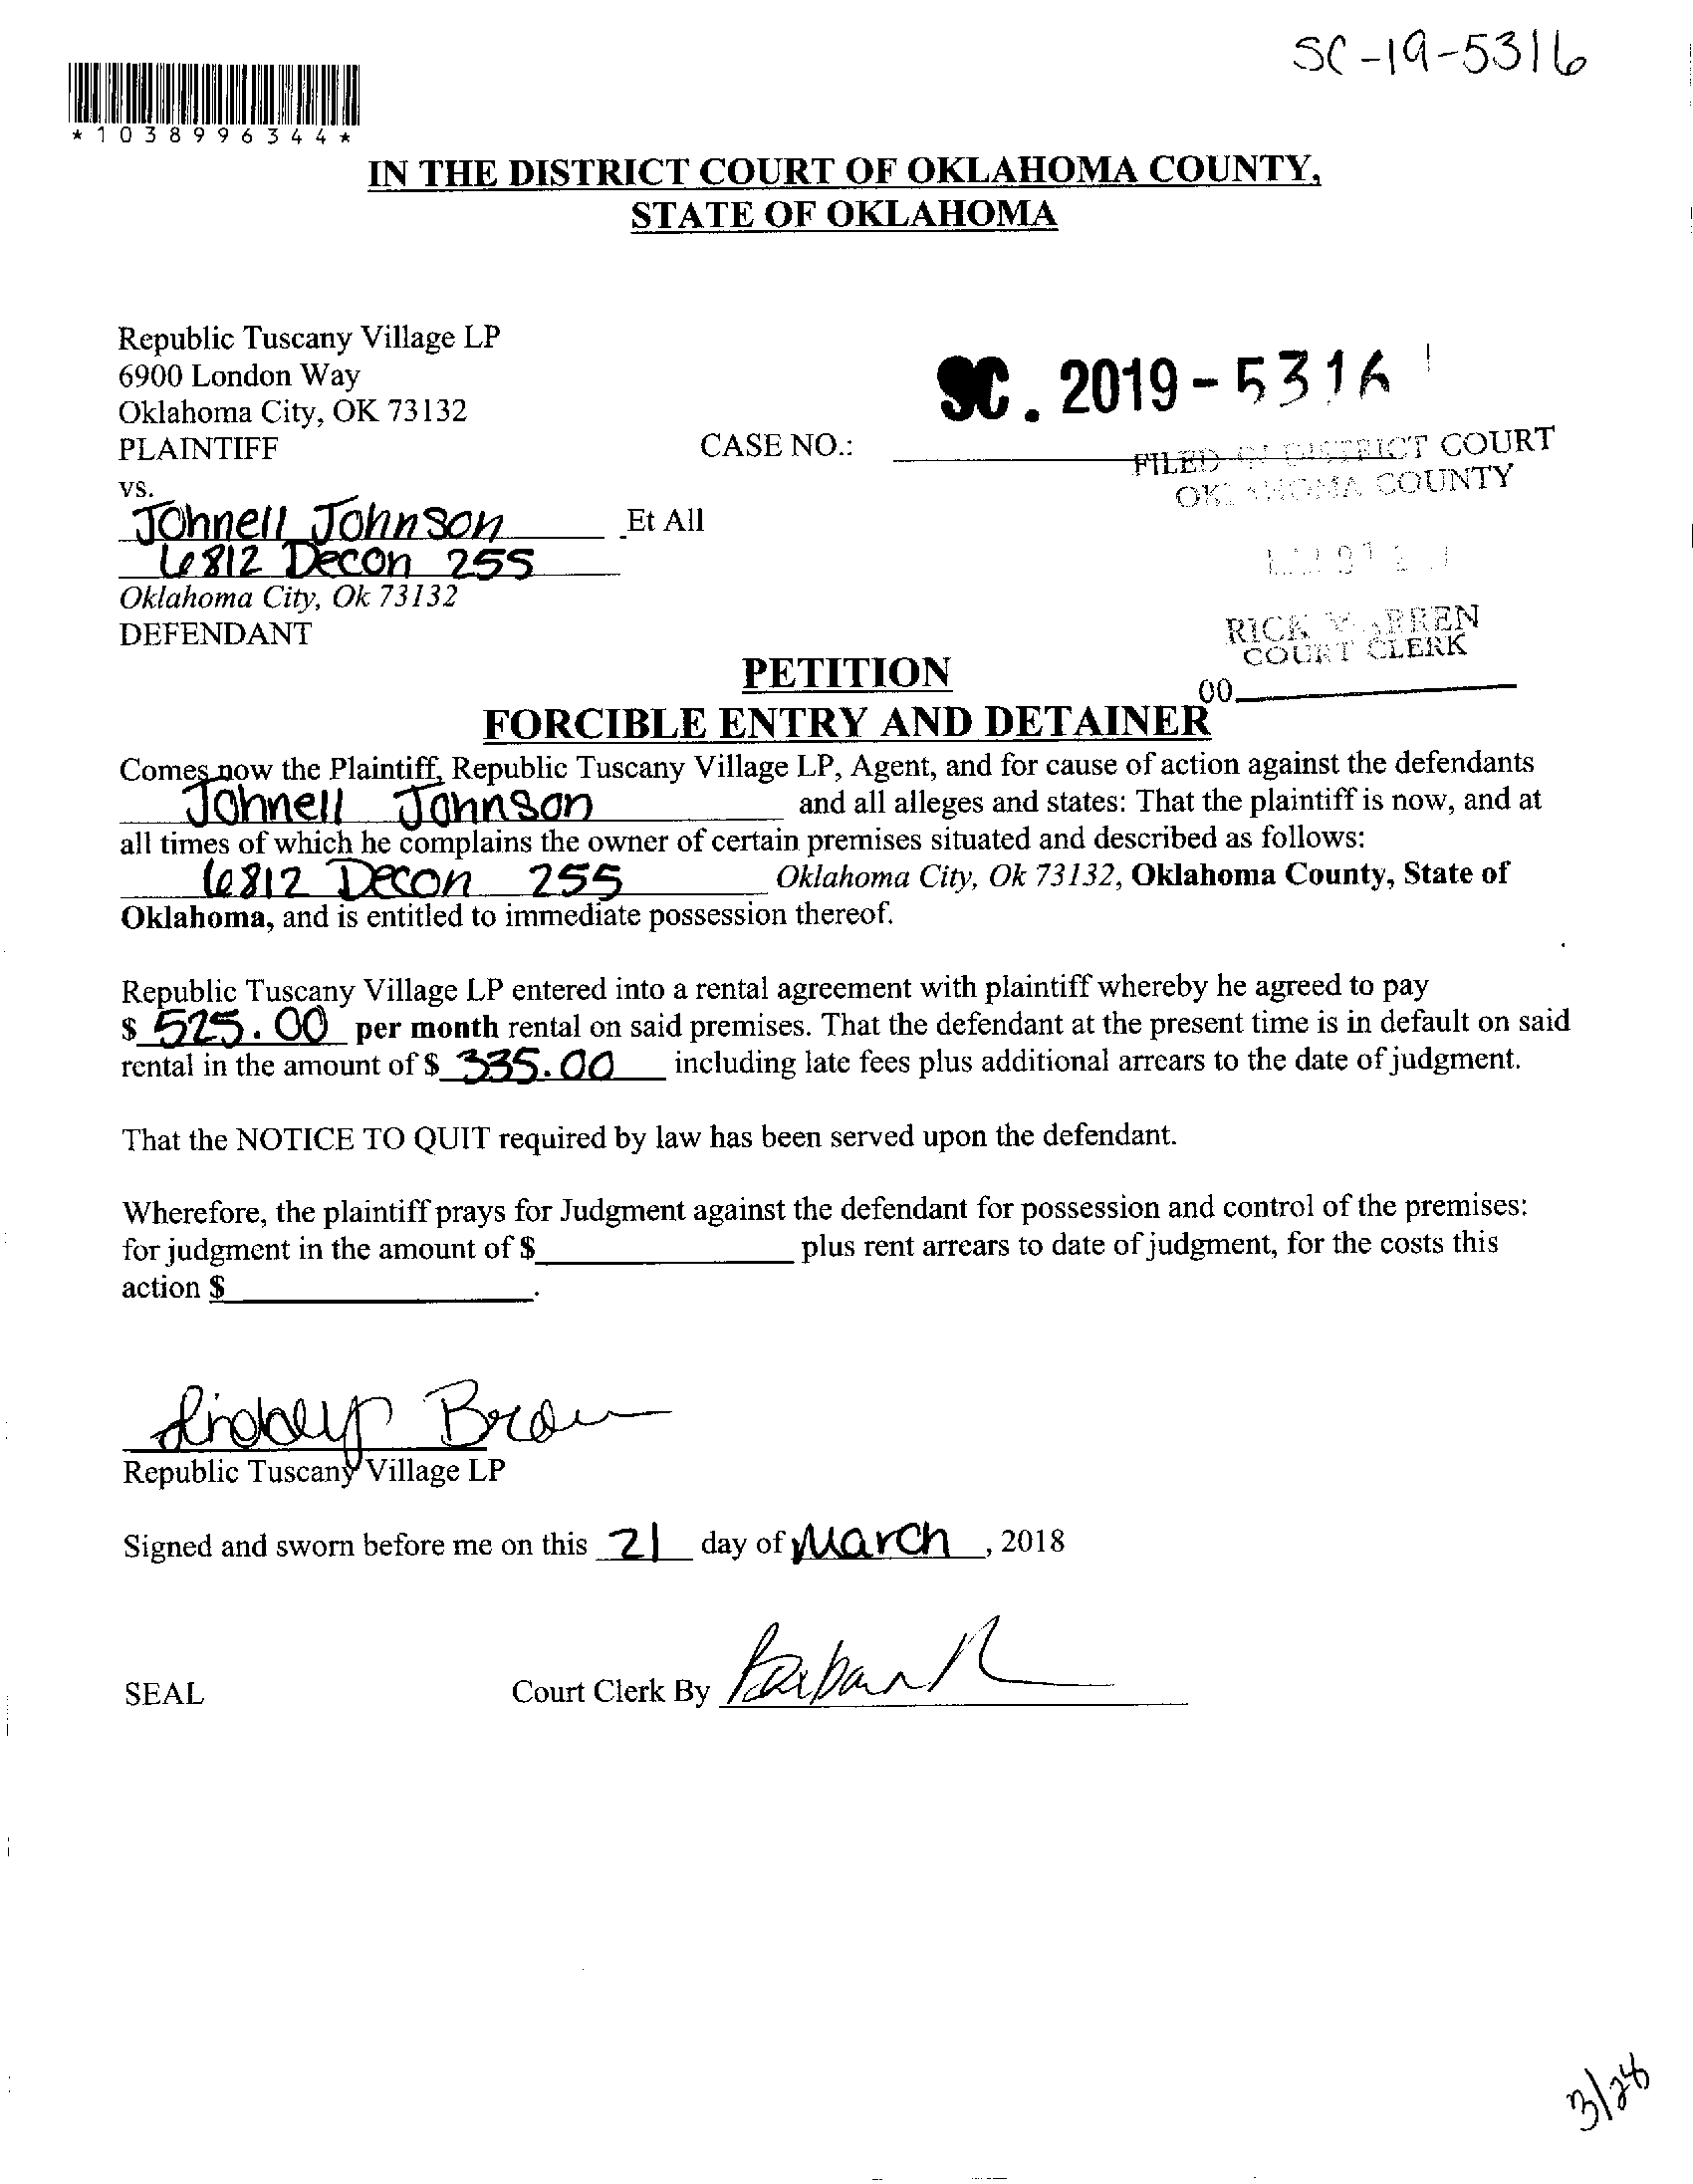 SC-19-5316
*1038996344*
IN THE DISTRICT COURT OF OKLAHOMA COUNTY,
STATE OF OKLAHOMA
Republic Tuscany Village LP
6900 London Way
Oklahoma City, OK 73132
PLAINTIFF
SC. 2019-5316
CASE NO.:
FILED IN DISTRICT COURT
OKLAHOMA COUNTY
vs.
Johnell Johnson Et All
6812 Decon 255
Oklahoma City, Ok 73132
DEFENDANT
RICK WARREN
COURT CLERK
PETITION
FORCIBLE ENTRY AND DETAINER
Comes now the Plaintiff, Republic Tuscany Village LP, Agent, and for cause of action against the defendants
Johnell Johnson and all alleges and states: That the plaintiff is now, and at
all times of which he complains the owner of certain premises situated and described as follows:
6812 Decon 255 Oklahoma City, Ok 73132, Oklahoma County, State of
Oklahoma, and is entitled to immediate possession thereof.
Republic Tuscany Village LP entered into a rental agreement with plaintiff whereby he agreed to pay
$ 525.00 per month rental on said premises. That the defendant at the present time is in default on said
rental in the amount of $ 335.00 including late fees plus additional arrears to the date of judgment.
That the NOTICE TO QUIT required by law has been served upon the defendant.
Wherefore, the plaintiff prays for Judgment against the defendant for possession and control of the premises:
for judgment in the amount of $ plus rent arrears to date of judgment, for the costs this
action $ .
Republic Tuscany Village LP
Signed and sworn before me on this 21 day of March, 2018
SEAL
Court Clerk By
3/28